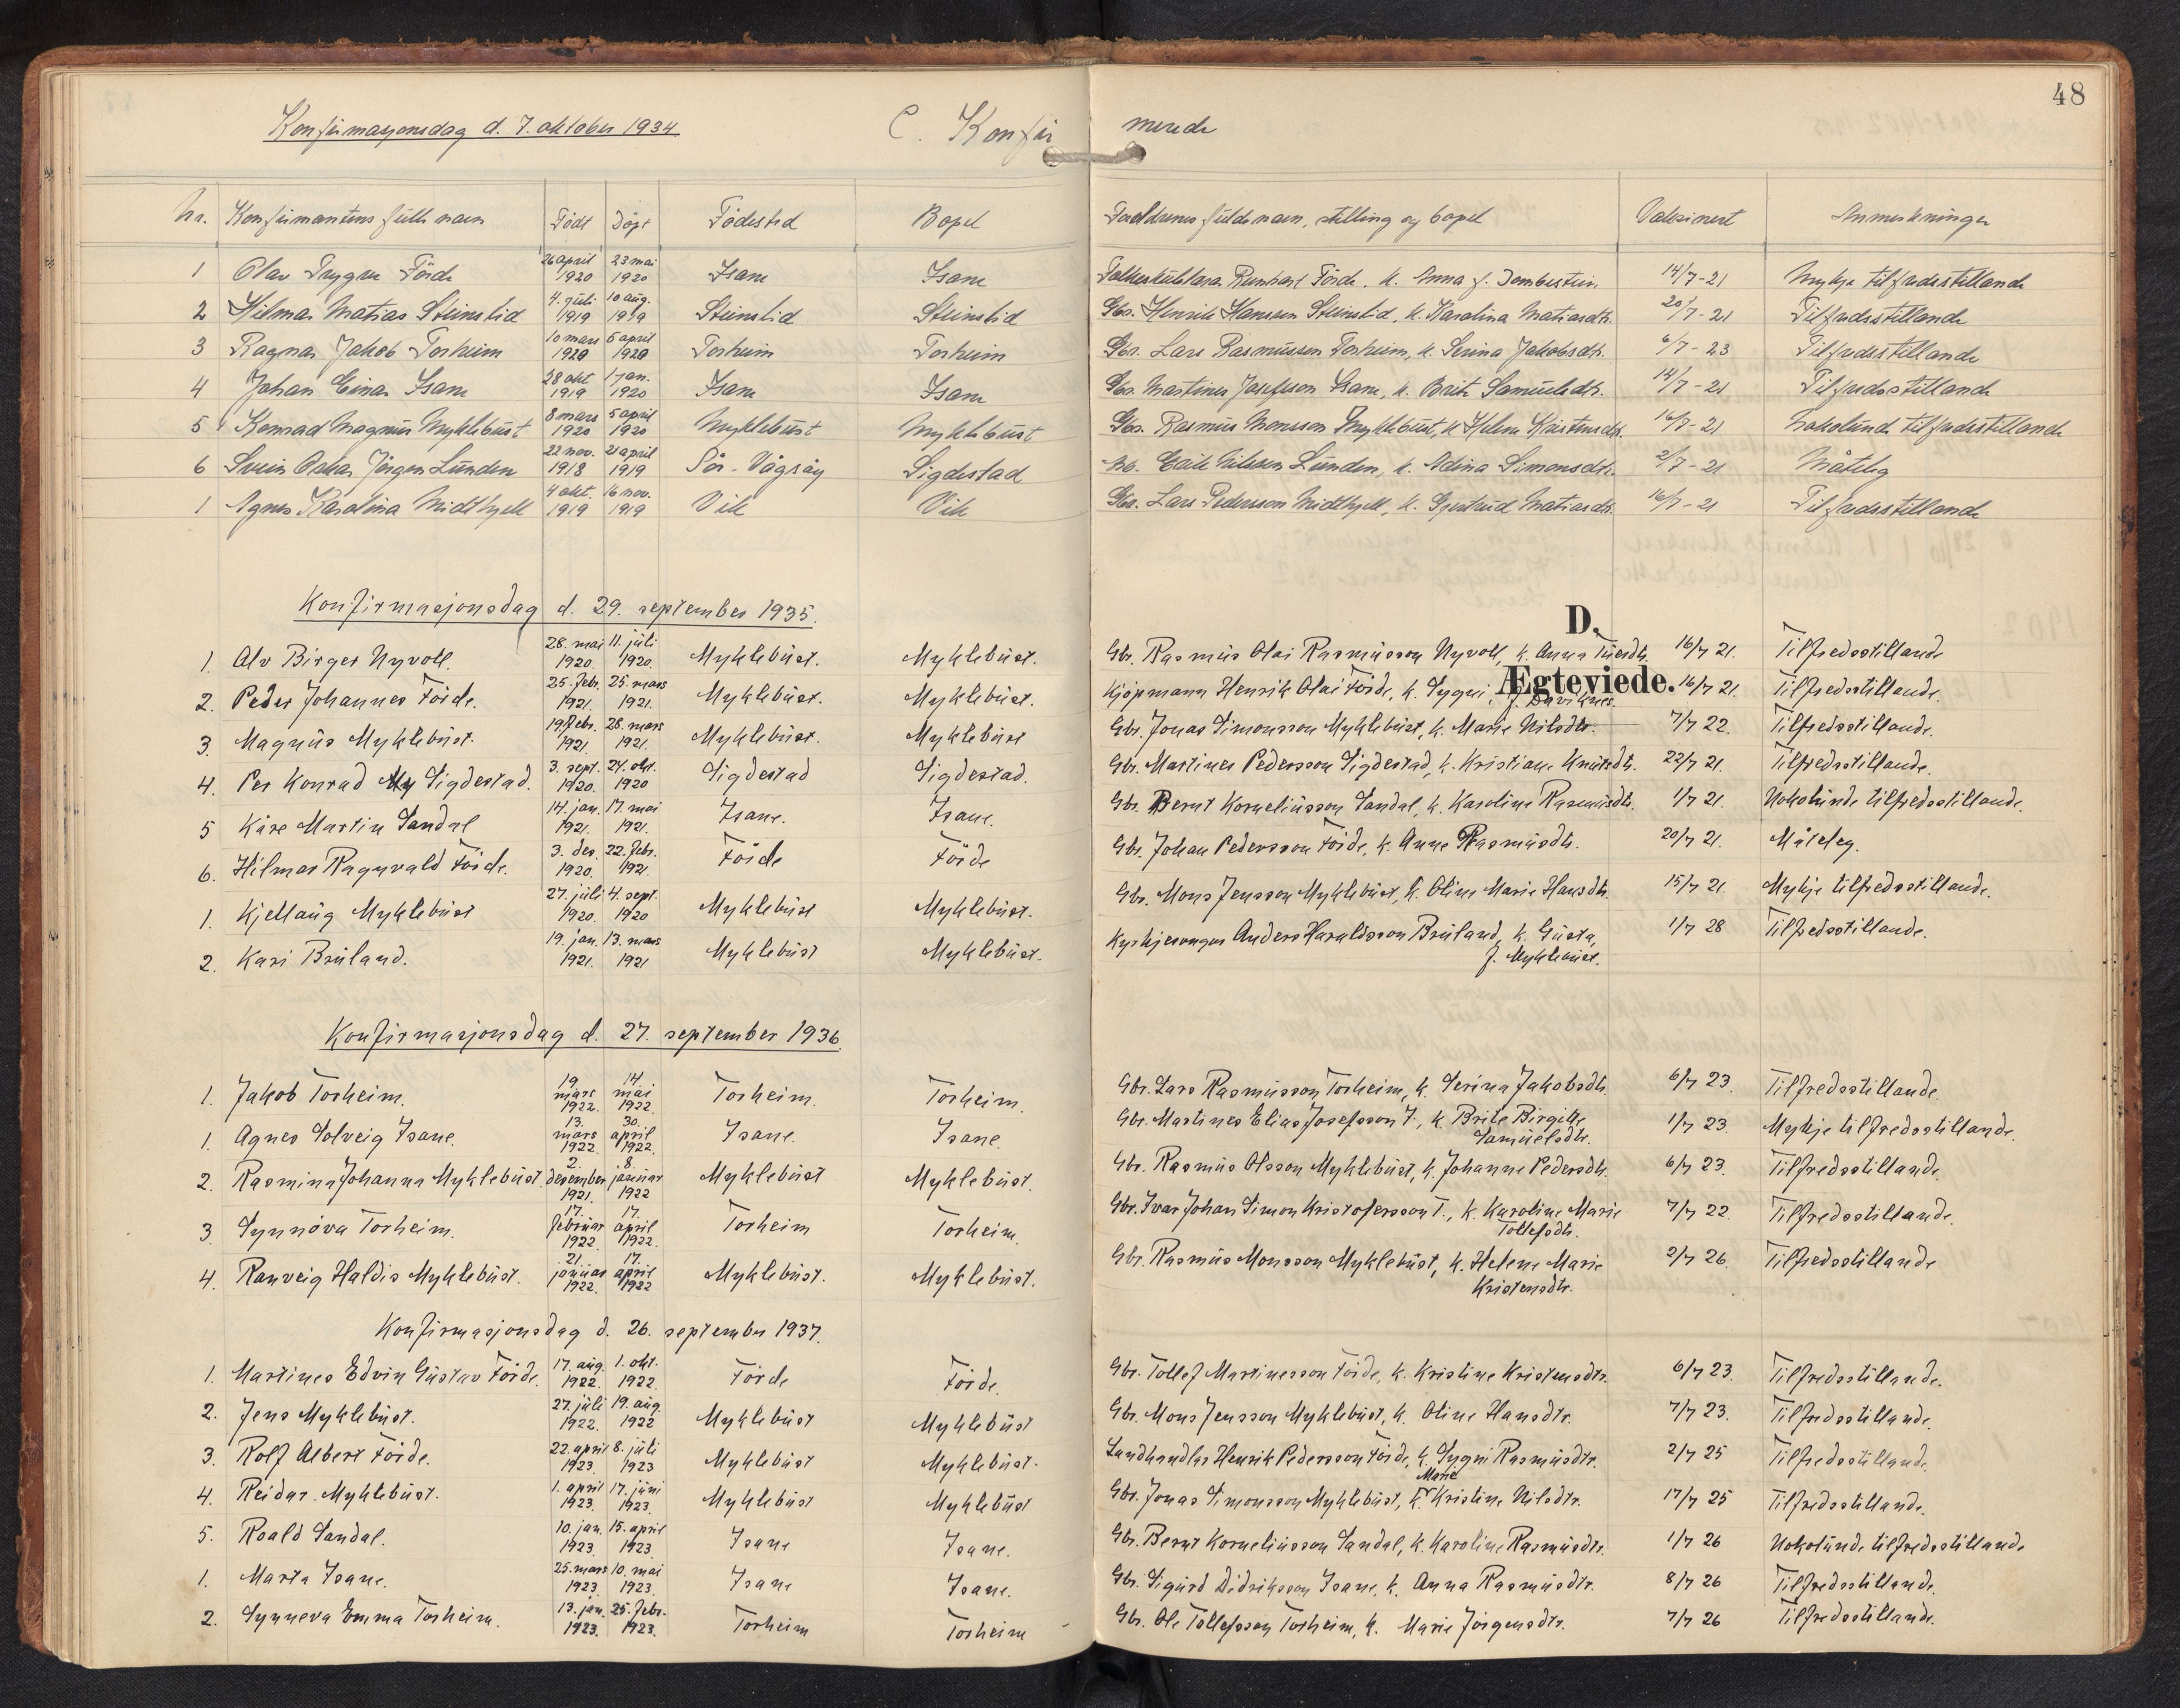 48
Konfirmasjonsdag d. 7. oktober 1934 C. Konfir merede
Nr. Konfirmantens fulle navn Födt Döpt Födested Bopel Foreldrenes fulde navn, stilling og bopel Vaksinert Anmerkninger
1 Olav Trygve Förde 26 april 1920 23 mai 1920 Isane Isane Förde, k. Anna f. Dombestein 14/7-21 Mykje tilfredsstillande
2 Hilmar Matias Steinslid 4. juli 1919 10 aug. 1919 Steinslid Steinslid Gbr. Henrik Hansson Steinslid, k. Karolina Matiasdtr. 20/7-21 Tilfredsstillande
3 Ragnar Jakob Torheim 10 mars 1920 5 april 1920 Torheim Torheim Gbr. Lars Rasmusson Torheim, k. Serina Jakobsdtr. 6/7-23 Tilfredsstillande
4 Johan Einar Isane 28 okt 1919 1 jan. 1920 Isane Isane Gbr. Martines Josefsson Isane, k. Brite Samuelsdtr. 14/7-21 Tilfredsstillande
5 Konrad Magnus Myklebust 8 mars 1920 5 april 1920 Myklebust Myklebust Gbr. Rasmus Monsson Myklebust, k. Helene Kristensdtr. 16/7-21 Nokolunde tilfredsstillande
6 Svein Oskar Jörgen Lunden 22 nov. 1918 21 april 1919 Sör-Vågsöy Sigdestad Nilsson Lunden, k. Adina Simonsdtr. 2/7-21 Måteleg
1 Agnes Karolina Midthjell 4 okt. 1919 16 nov. 1919 Vik Vik Gbr. Lars Pedersson Midthjell, k. Gjertrud Matiasdtr. 16/7-21 Tilfredsstillande
Konfirmasjonsdag d. 29. september 1935.
D.
Ægteviede.
1. Alv Birger Nyvoll. 28. mai 1920. 11. juli 1920. Myklebust. Myklebust. Gbr. Rasmus Olai Rasmusson Nyvoll, k. Anna 16/7 21. Tilfredsstillande
2. Peder Johannes Förde. 25. febr. 1921. 25. mars 1921. Myklebust. Myklebust. Kjöpmann Henrik Olai Förde, k. Sygni, f. Daviknes. 16/7 21. Tilfredsstillande.
3. Magnus Myklebust. 19. febr. 1921. 28. mars 1921. Myklebust. Myklebust Gbr. Jonas Simonsson Myklebust, k. Marie Nilsdtr. 7/7 22. Tilfredsstillande.
4. Per Konrad My Sigdestad. 3. sept. 1920. 24. okt. 1920 Sigdestad Sigdestad. Gbr. Martines Pedersson Sigdestad, k. Kristiane Knutsdtr. 22/7 21. Tilfredsstillande.
5 Kåre Martin Sandal 14. jan. 1921. 17. mai 1921. Isane. Isane. Gbr. Bernt Korneliusson Sandal, k. Karoline Rasmusdtr. 1/7 21. Nokolunde tilfredsstillande.
6. Hilmar Ragnvald Förde. 3. des. 1920. 22. febr. 1921. Förde Förde Gbr. Johan Pedersson Förde, k. Anne Rasmusdtr. 20/7 21. Måteleg.
1. Kjellaug Myklebust 27. juli 1920. 4. sept. 1920 Myklebust Myklebust. Gbr. Mons Jensson Myklebust, k. Oline Marie Hansdtr. 15/7 21. Mykje tilfredsstillande.
2. Kari Bruland. 19. jan. 1921. 13. mars 1921 Myklebust Myklebust. Kyrkjesongar Anders Haraldsson Bruland, k. Gusta, f. Myklebust. 1/7 28 Tilfredsstillande.
Konfirmasjonsdag d. 27. september 1936.
1. Jakob Torheim. 19 mars 1922. 14. mai 1922. Torheim. Torheim. Gbr. Lars Rasmusson Torheim, k. Serina Jakobsdtr. 6/7 23. Tilfredsstillande.
1. Agnes Solveig Isane. 13. mars 1922. 30. april 1922. Isane. Isane. Gbr. Martines Elias Josefsson I., k. Brite Birgitte Samuelsdtr. 1/7 23. Mykje tilfredsstillande.
2. Rasmina Johanna Myklebust. 2. desember 1921. 8. januar 1922 Myklebust Myklebust. Gbr. Rasmus Olsson Myklebust, k. Johanne Pedersdtr. 6/7 23. Tilfredsstillande.
3. Synnöva Torheim. 17. februar 1922. 17. april 1922. Torheim Torheim. Gbr. Ivar Johan Simon Kristofersson T., k. Karoline Marie Tollefsdtr. 7/7 22. Tilfredsstillande.
4. Ranveig Haldis Myklebust. 21. januar 1922. 17. april 1922 Myklebust. Myklebust. Gbr. Rasmus Monsson Myklebust, k. Helene Marie Kristensdtr. 2/7 26. Tilfredsstillande
Konfirmasjonsdag d. 26. september 1937.
1. Martines Edvin Gustav Förde. 17. aug. 1922. 1. okt. 1922. Förde Förde. Gbr. Tollef Martinesson Förde, k. Kristine Kristensdtr. 6/7 23. Tilfredsstillande.
2. Jens Myklebust. 27. juli 1922. 19. aug. 1922 Myklebust Myklebust Gbr. Mons Jensson Myklebust, k. Oline Hansdtr. 7/7 23. Tilfredsstillande.
3. Rolf Albert Förde. 22. april 1923. 8. juli 1923 Myklebust Myklebust. Landhandlar Henrik Pedersson Förde, k. Sygni Rasmusdtr. 2/7 25 Tilfredsstillande.
4. Reidar Myklebust. 1. april 1923. 17. juni 1923. Myklebust Myklebust Gbr. Jonas Simonsson Myklebust, k. Marie Kristine Nilsdtr. 17/7 25 Tilfredsstillande.
5. Roald Sandal. 10. jan. 1923. 15. april 1923. Isane Isane. Gbr. Bernt Korneliusson Sandal, k. Karoline Rasmusdtr. 1/7 26 Nokolunde tilfredsstillande
1. Marta Isane. 25. mars 1923. 10. mai 1923. Isane Isane. Gbr. Sigurd Didriksson Isane, k. Anna Rasmusdtr. 8/7 26 Tilfredsstillande.
2. Synneva Emma Torheim. 13. jan. 1923. 25. febr. 1923. Torheim Torheim Gbr. Ole Tollefsson Torheim, k. Marie Jörgensdtr. 7/7 26 Tilfredsstillande.